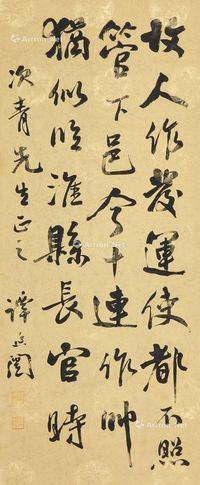 故人作發運使都不照
管下邑今十連作帥
猶似臨淮縣長官時
次青先生正之
譚延闓